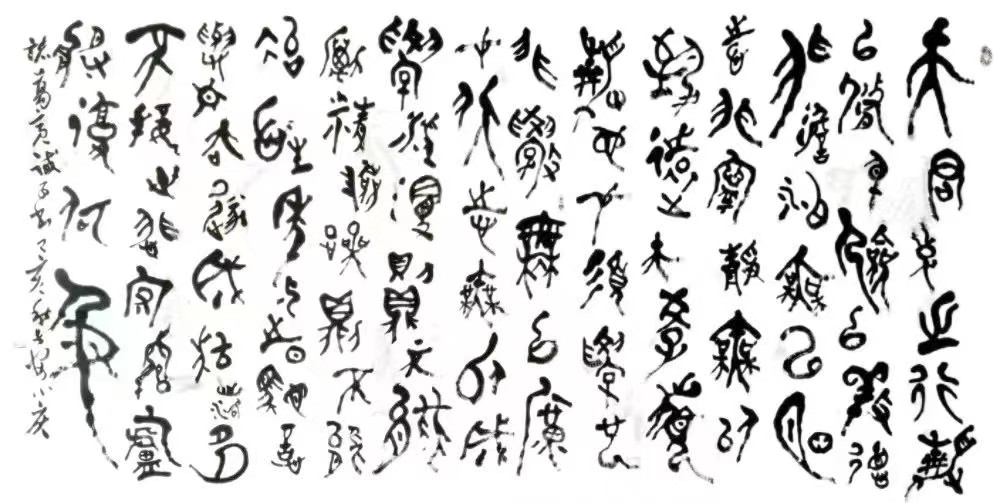 夫君子之行靜
以修身儉以養德
非澹泊無以明
志非寧靜無以
致遠夫學須
靜也才須學也
非學無以廣
才非志無以成
學淫慢則不能
勵精險躁則不能
治性年與時馳意
與日去遂成枯落多
不接世悲守窮廬
將復何及
諸葛亮誡子書